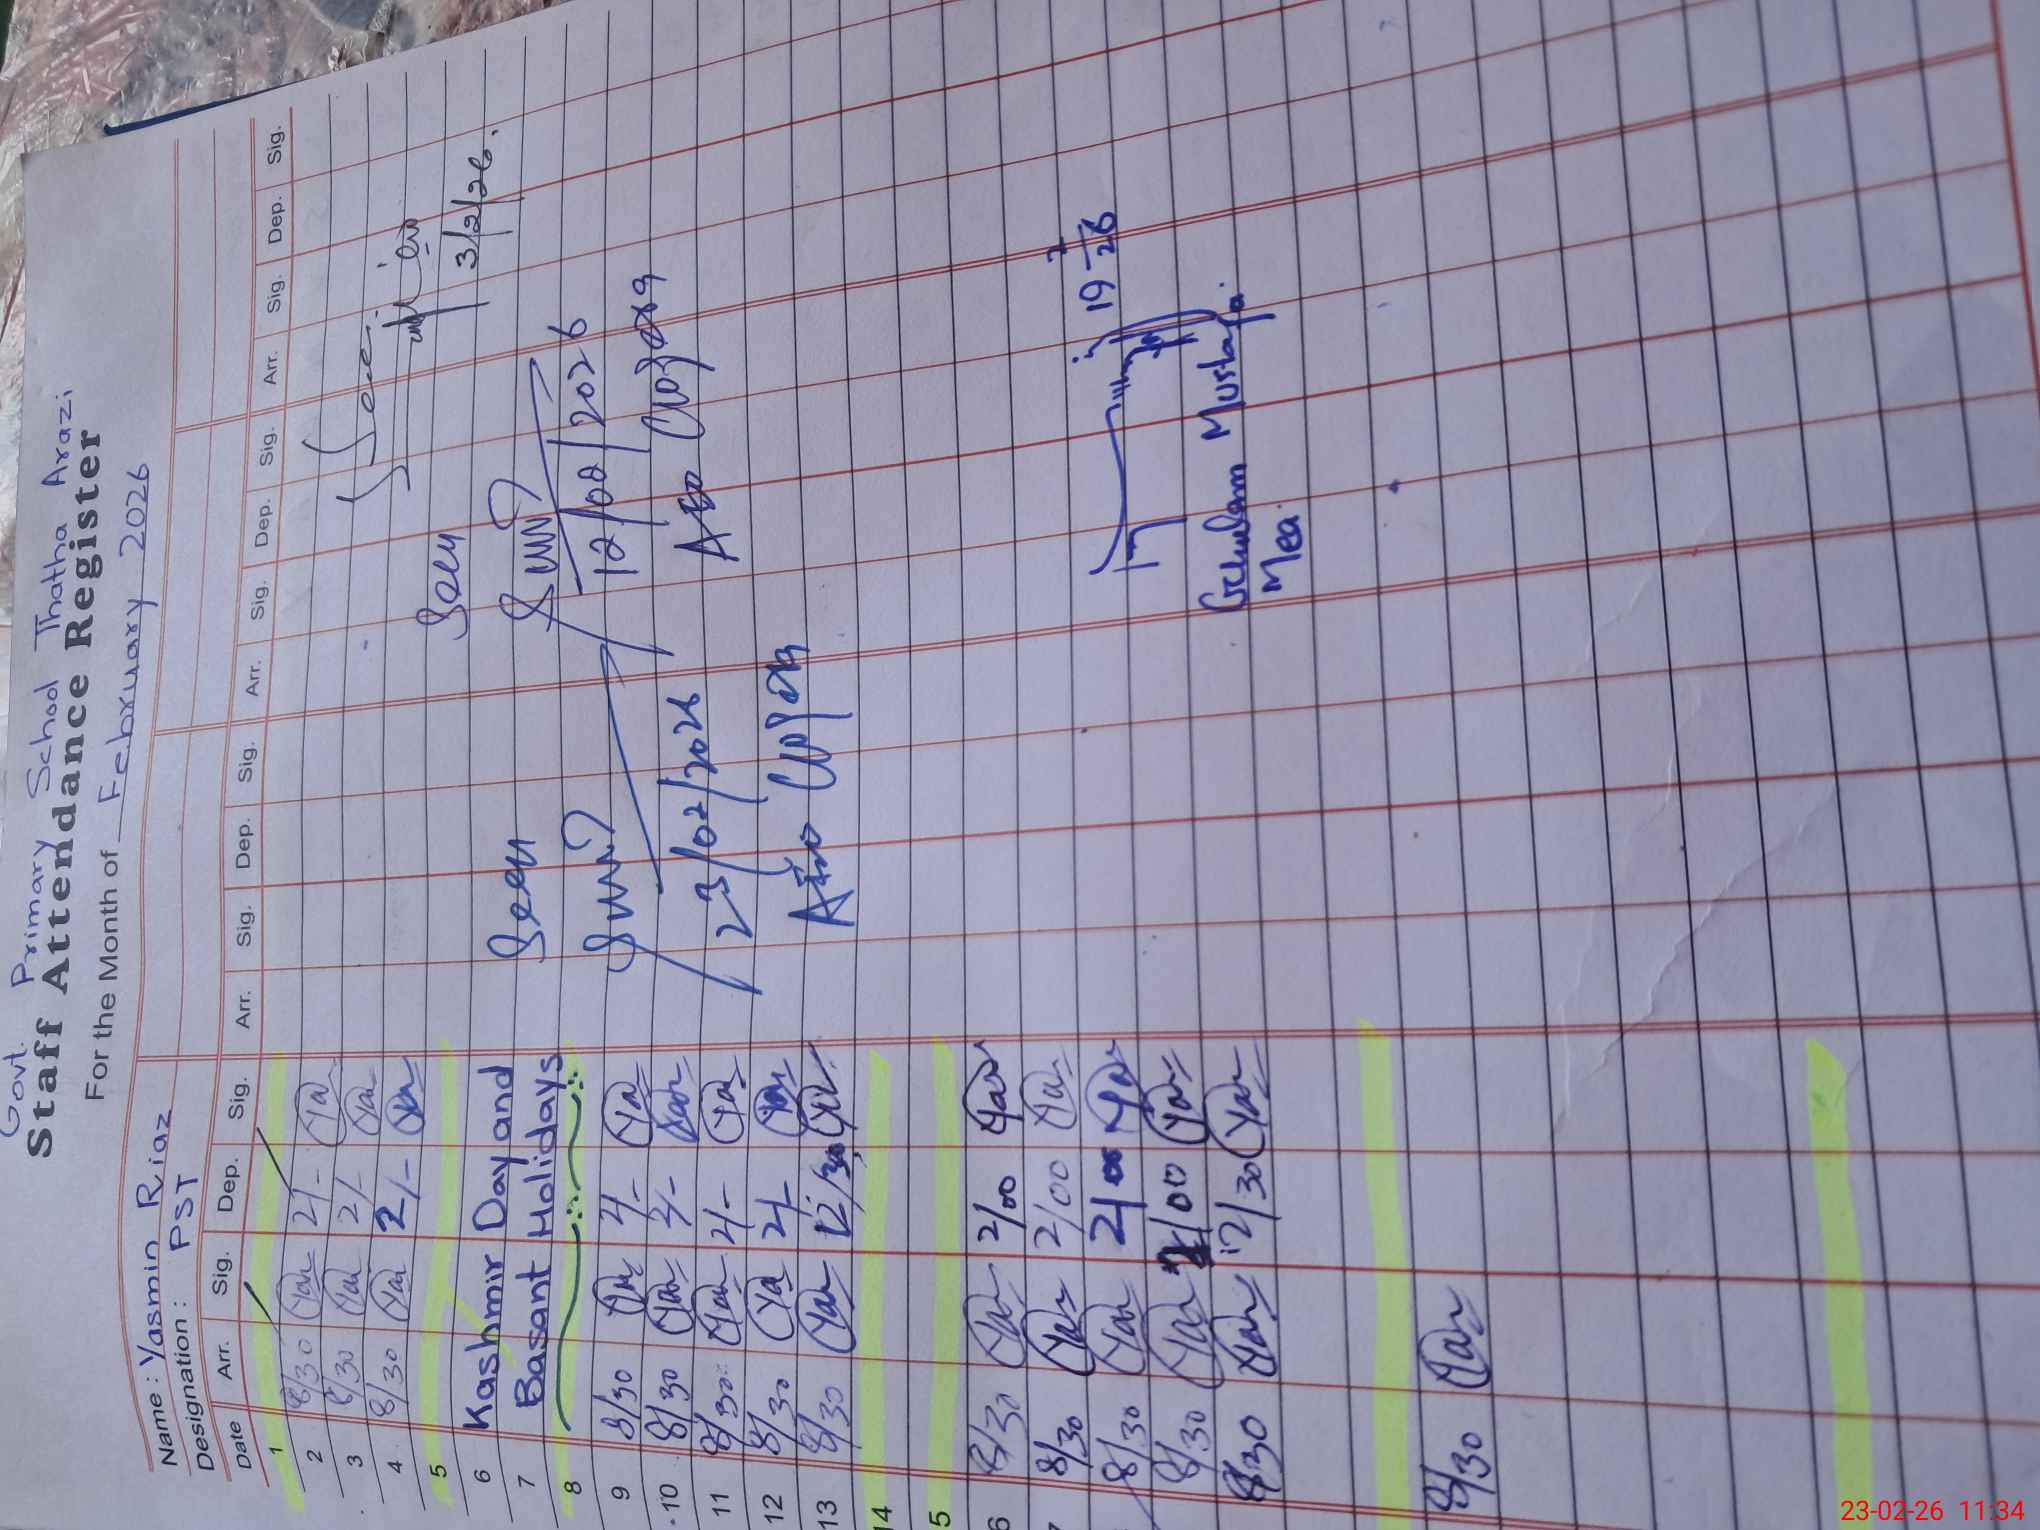 Govt. Primary School Thatha Arazi
Staff Attendance Register
For the Month of February 2026
Name: Yasmin Riaz
Designation: PST
Date Arr. Sig. Dep. Sig. Arr. Sig. Dep. Sig. Arr. Sig. Dep. Sig. Arr. Sig. Dep. Sig.
1
2 8/30 Yar 2/- Yar
3 8/30 Yar 2/- Yar
4 8/30 Yar 2/- Yar
5
6 Kashmir Day and
7 Basant Holidays
8
9 8/30 Yar 2/- Yar
10 8/30 Yar 2/- Yar
11 8/30 Yar 2/- Yar
12 8/30 Yar 2/- Yar
13 8/30 Yar 12/30 Yar
14
5
6 8/30 Yar 2/00 Yar
7 8/30 Yar 2/00 Yar
8/30 Yar 2/00 Yar
8/30 Yar 2/00 Yar
8/30 Yar 12/30 Yar
8/30 Yar
3/2/26.
Seen
12/02/2026
AEO
Seen
23/02/2026
AEO
19 2/26
Ghulam Mustafa
Mea
23-02-26 11:34